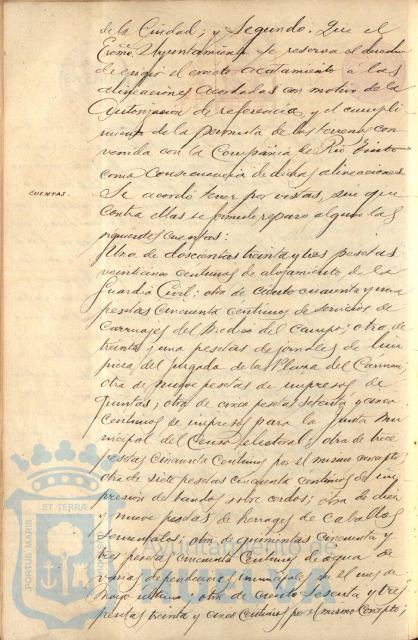 de la Ciudad; y Segundo: Que el
Excmo. Ayuntamiento se reserva el derecho
de exigir el exacto acatamiento a las
alineaciones acordadas con motivo de la
autorización de referencia, y el cumpli-
miento de la permuta de los terrenos con-
venida con la Compañía de Rio Tinto
como consecuencia de dichas alineaciones.
CUENTAS.
Se acordó tener por vistas, sin que
contra ellas se formule reparo alguno las
siguientes cuentas:
Una de doscientas treinta y tres pesetas
veinticinco centimos de alojamiento de la
Guardia Civil; otra de ciento cincuenta y una
pesetas cincuenta centimos de servicios de
carruajes del Medico del campo; otra de
treinta y una pesetas de jornales de lim-
pieza del juzgado de la Plaza del Carmen;
otra de nueve pesetas de impresos de
quintas; otra de cinco pesetas setenta y cinco
centimos de impresos para la Junta Mu-
nicipal del Censo electoral y otra de trece
pesetas cincuenta centimos por el mismo concepto;
otra de siete pesetas cincuenta centimos de im-
presión de bandos sobre cerdos; otra de diez
y nueve pesetas de herrajes de caballos
sementales; otra de quinientas cincuenta y
tres pesetas cincuenta centimos de agua de
varias dependencias municipales en el mes de
Mayo ultimo; otra de ciento sesenta y tres
pesetas treinta y cinco centimos por el mismo concepto;
PORTUS MARIS ET TERRÆ
Ayuntamiento de